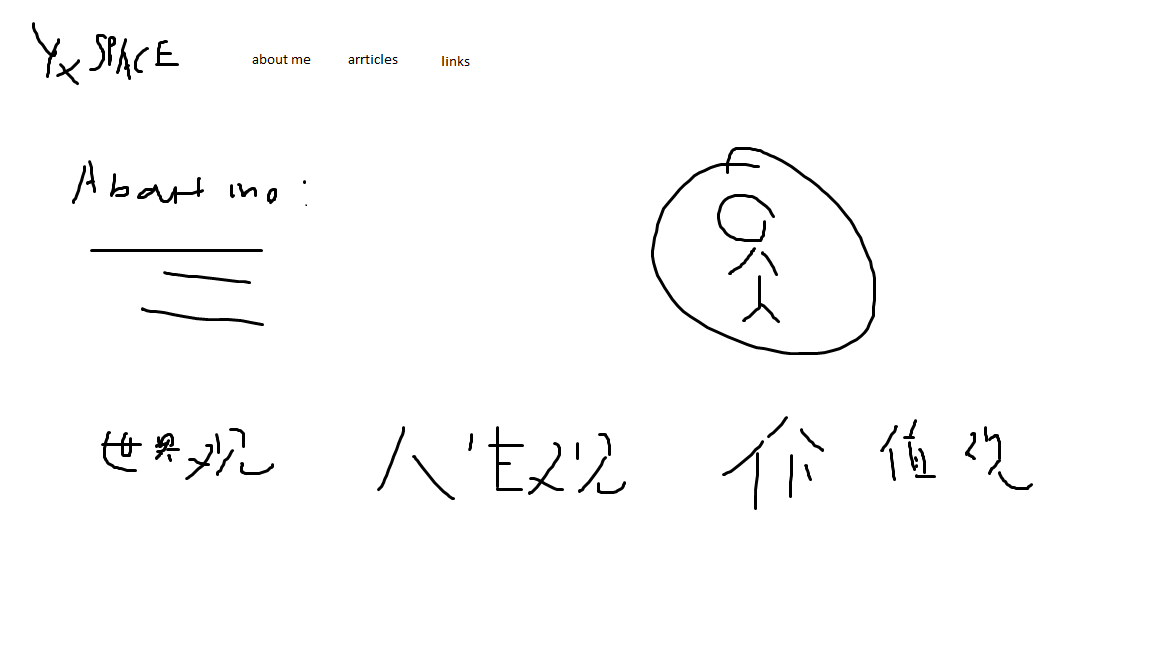 YX SPACE about me arrticles links
About me:
世界观 人生观 价值观